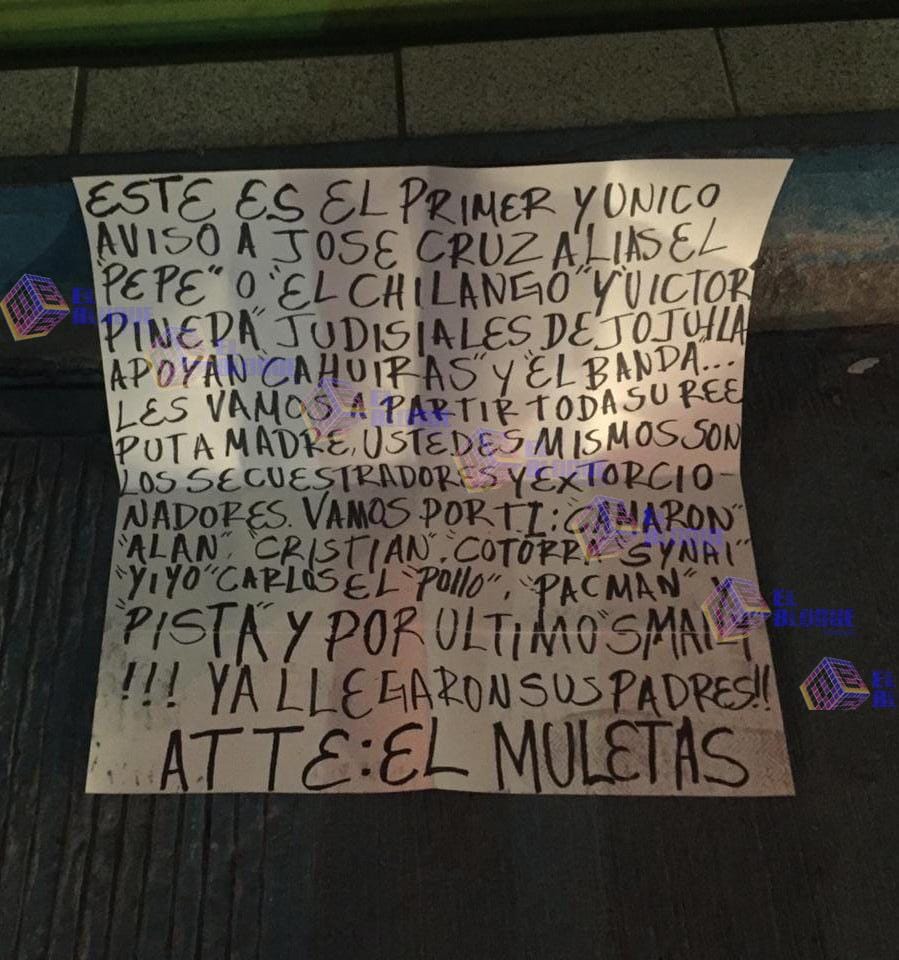 ESTE ES EL PRIMER Y UNICO
AVISO A JOSE CRUZ ALIAS EL
"PEPE" O "EL CHILANGO" Y "VICTOR
PINEDA" JUDISIALES DE JOJUTLA
APOYAN CAHUIRAS" Y "EL BANDA...
LES VAMOS A PARTIR TODA SU REE
PUTA MADRE, USTEDES MISMOS SON
LOS SECUESTRADORES Y EXTORCIO-
NADORES. VAMOS POR TI: "CAMARON"
"ALAN", "CRISTIAN", COTORRA "SYNAI"
"YIYO" CARLOS EL "POLLO", "PACMAN" Y
"PISTA" Y POR ULTIMO "SMAILY
!!! YA LLEGARON SUS PADRES!!
ATTE: EL MULETAS
EL BLOQUE